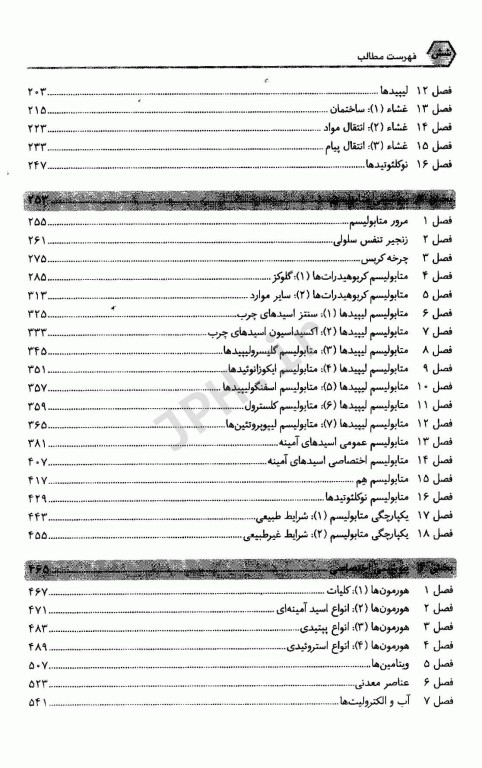 شش فهرست مطالب
فصل ۱۲ لیپیدها ۲۰۳
فصل ۱۳ غشاء (۱): ساختمان ۲۱۵
فصل ۱۴ غشاء (۲): انتقال مواد ۲۲۳
فصل ۱۵ غشاء (۳): انتقال پیام ۲۳۳
فصل ۱۶ نوکلئوتیدها ۲۴۷
۲۵۳
فصل ۱ مرور متابولیسم ۲۵۵
فصل ۲ زنجیر تنفس سلولی ۲۶۱
فصل ۳ چرخه کربس ۲۷۵
فصل ۴ متابولیسم کربوهیدرات‌ها (۱): گلوکز ۲۸۵
فصل ۵ متابولیسم کربوهیدرات‌ها (۲): سایر موارد ۳۱۳
فصل ۶ متابولیسم لیپیدها (۱): سنتز اسیدهای چرب ۳۲۵
فصل ۷ متابولیسم لیپیدها (۲): اکسیداسیون اسیدهای چرب ۳۳۳
فصل ۸ متابولیسم لیپیدها (۳): متابولیسم گلیسرولیپیدها ۳۴۵
فصل ۹ متابولیسم لیپیدها (۴): متابولیسم ایکوزانوئیدها ۳۵۱
فصل ۱۰ متابولیسم لیپیدها (۵): متابولیسم اسفنگولیپیدها ۳۵۷
فصل ۱۱ متابولیسم لیپیدها (۶): متابولیسم کلسترول ۳۵۹
فصل ۱۲ متابولیسم لیپیدها (۷): متابولیسم لیپوپروتئین‌ها ۳۶۵
فصل ۱۳ متابولیسم عمومی اسیدهای آمینه ۳۸۱
فصل ۱۴ متابولیسم اختصاصی اسیدهای آمینه ۴۰۷
فصل ۱۵ متابولیسم هِم ۴۱۷
فصل ۱۶ متابولیسم نوکلئوتیدها ۴۲۹
فصل ۱۷ یکپارچگی متابولیسم (۱): شرایط طبیعی ۴۴۳
فصل ۱۸ یکپارچگی متابولیسم (۲): شرایط غیرطبیعی ۴۵۵
۴۶۵
فصل ۱ هورمون‌ها (۱): کلیات ۴۶۷
فصل ۲ هورمون‌ها (۲): انواع اسید آمینه‌ای ۴۷۱
فصل ۳ هورمون‌ها (۳): انواع پپتیدی ۴۸۳
فصل ۴ هورمون‌ها (۴): انواع استروئیدی ۴۸۹
فصل ۵ ویتامین‌ها ۵۰۷
فصل ۶ عناصر معدنی ۵۲۳
فصل ۷ آب و الکترولیت‌ها ۵۴۱